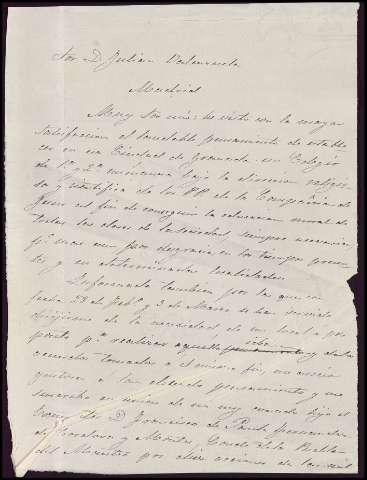 Sor D Julian Valenzuela
Madrid
Muy Sor mio: he visto con la mayor
satisfaccion el laudable pensamiento de estable
cer en esa Ciudad de Granada un Colegio
de 1ª y 2ª enseñanza bajo la direccion religio
sa y cientifica de los PP. de la Compañia de
Jesus al fin de conseguir la educacion moral de
todas las clases de la sociedad siempre necesaria,
pº mas aun por desgracia en los tiempos presen
tes y en determinadas localidades.
Enterado tambien por la que con
fecha 22 de Febº y 3 de Marzo se han servido
dirijirme de la necesidad de un local a pro
posito pª realizar aquella idea y de los
acuerdos tomados al mismo fin, me asocio
gustoso á tan elevado pensamiento y me
suscribo en union de mi muy amado hijo el
Excmo Sor D Francisco de Paula Fernandez
de Cordova y Conde de la Puebla
del Maestre por diez acciones de las mil